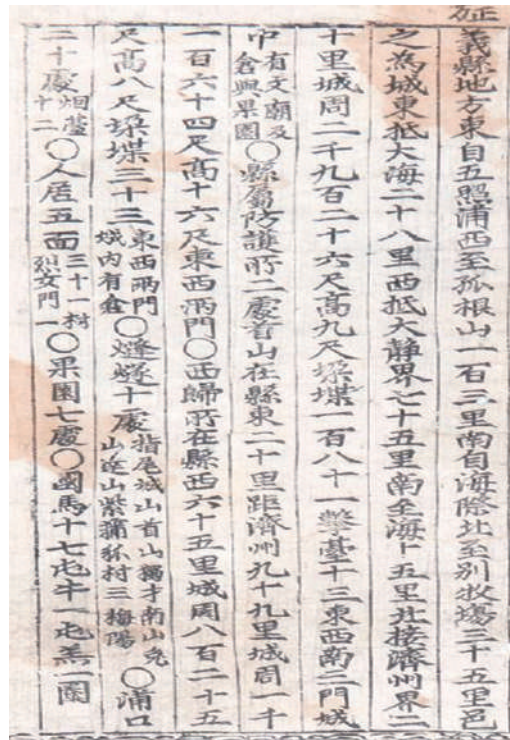 㫌
義縣地方東自五照浦西至孤根山一百三里南自海際北至別牧塲三十五里邑
之爲城東抵大海二十八里西抵大靜界七十五里南至海十五里北接濟州界二
十里城周二千九百二十六尺高九尺垜堞一百八十一擊臺十三東西南三門城
中有文廟及倉與果園○縣屬防護所二處首山在縣東二十里距濟州九十九里城周一千
一百六十四尺高十六尺東西兩門○西歸所在縣西六十五里城周八百二十五
尺高八尺垜堞三十三東西兩門城內有倉○烽燧十處指尾城山首山獨才南山兔山逹山紫蒲狐村三梅陽○浦口
二十處烟臺十二○人居五面三十一村烈女門一○果園七處○國馬十七屯牛一屯羔一圈